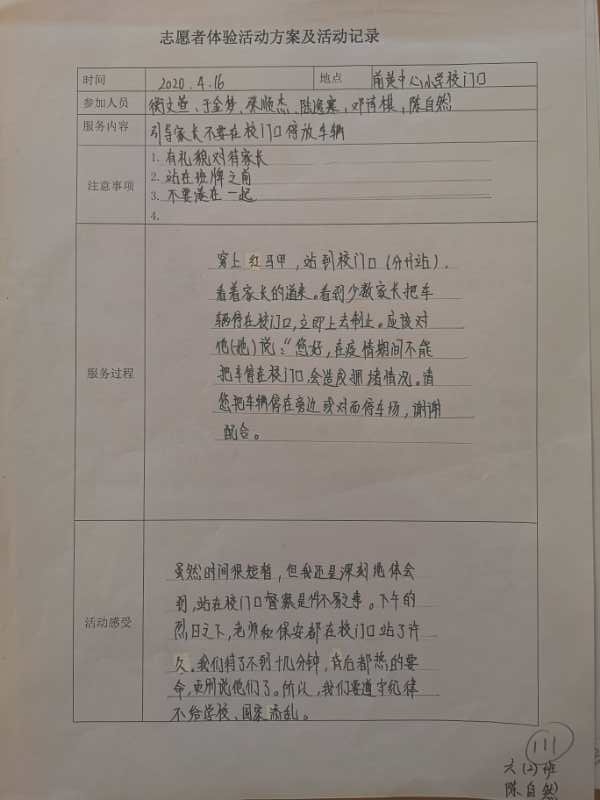 志愿者体验活动方案及活动记录
时间 2020.4.16 地点 前黄中心小学校门口
参加人员 衡文萱、于金梦、梁顺杰、陆逸寒、邓诗棋、陈自然
服务内容 引导家长不要在校门口停放车辆
注意事项
1. 有礼貌对待家长
2. 站在班牌之前
3. 不要凑在一起
4.
服务过程
穿上红马甲，站到校门口（分开站）.
看着家长的道来。看到少数家长把车
辆停在校门口，立即上去制止。应该对
他（她）说：“您好，在疫情期间不能
把车停在校门口，会造成拥堵情况。请
您把车辆停在旁边或对面停车场，谢谢
配合。
活动感受
虽然时间很短暂，但我还是深刻地体会
到，站在校门口督察是件不易之事。下午的
烈日之下，老师和保安都在校门口站了许
久。我们待了不到十几分钟，背后都热的要
命，更别说他们了。所以，我们要遵守纪律
不给学校、国家添乱。
111
六（2）班
陈自然